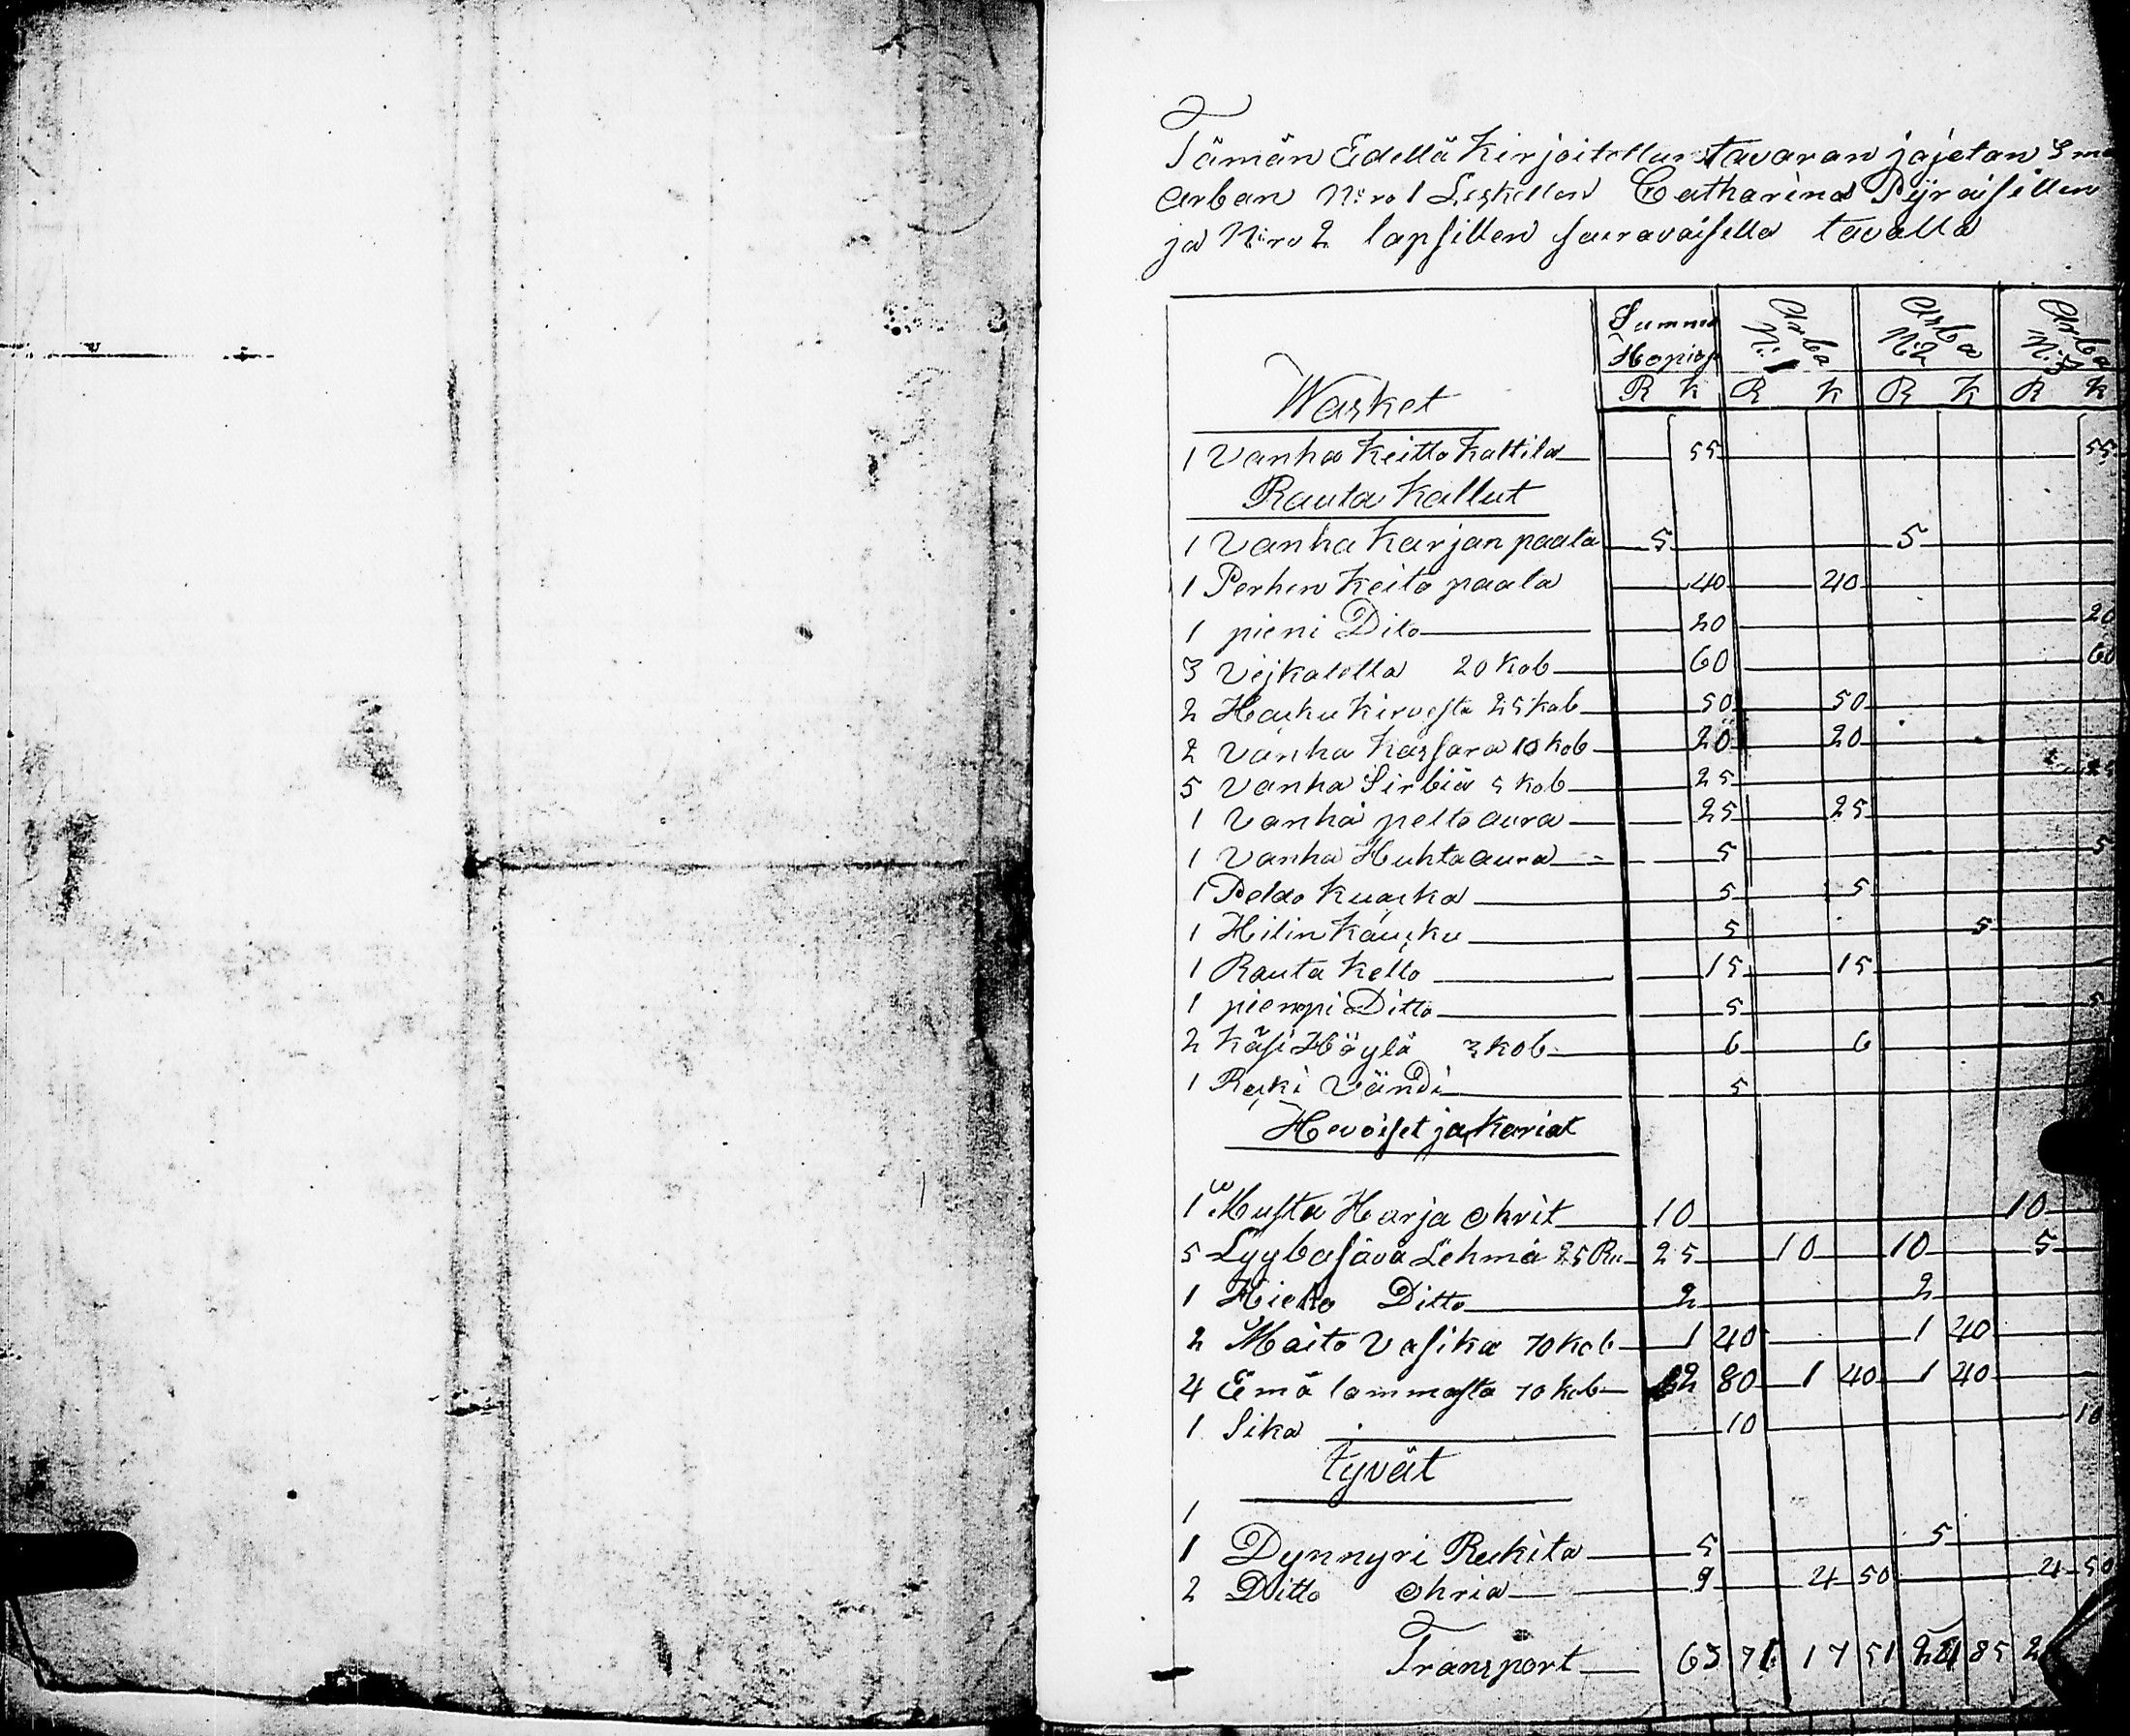 Tämän Edellä Kirjoitettun tavaran jajetan 3 me
arban N:ro 1 Leskellen Catharina Pyräisillen
ja N:ro 2 lapsillen seuravaisella tavalla
Summa Hopias Arba N:1 Arba N:2 Arba N:3
R K R K R K R K
Wasket
1 Vanha Keitto Kattila 55 55
Rauta Kallut
1 Vanha Karjan paata 5 5
1 Perhen Keito paala 40 40
1 pieni Dito 20 20
3 Vejkatella 20 Kob 60 60
2 Hasku Kirvesta 25 Kob 50 50
2 Vanha Kassara 10 Kob 20 20
5 Vanha Sirbiä 5 Kob 25 25
1 Vanha pelto aura 25 25
1 Vanha Huhta aura 5 5
1 Peldo Kuaska 5 5
1 Hilin Kausku 5 5
1 Rauta Kello 15 15
1 piempi Ditto 5 5
2 Käsi Höylä 3 Kob 6 6
1 Reski Vändi 5
Hevoiset ja Kariat
1 Musta Harja Ohrit 10 10
5 Lyybäsävä Lehmä 25 Ru 25 10 10 5
1 Hieho Ditto 2 2
2 Maito Vasika 70 Kob 1 40 1 40
4 Emä lammasta 70 Kob 2 80 1 40 1 40
1 Sika 10 10
tyvät
1
1 Dynnyri Rukita 5 5
2 Ditto Ohria 9 4 50 4 50
Transport 63 71 17 51 24 85 2